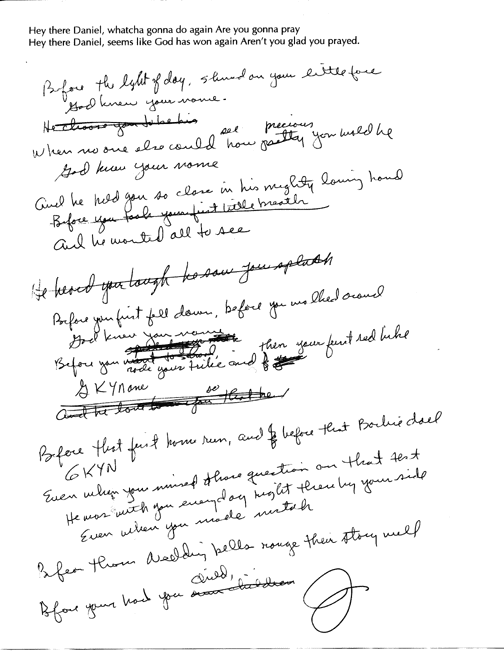 Hey there Daniel, whatcha gonna do again Are you gonna pray
Hey there Daniel, seems like God has won again Aren't you glad you prayed.
Before the light of day, shined on your little face
God knew your name.
He choose you to be his
When no one else could see how precious pretty you would be
God knew your name
And he held you so close in his mighty loving hand
Before you took your first little breath
And he wanted all to see
He heard you laugh he saw you splash
Before you first fell down, before you walked around
God knew your name
Before you rode your trike and then your first red bike
GKYName
And he
Before that first home run, and before that Barbie doll
GKYN
Even when you missed those question on that test
He was with you everyday right there by your side
Even when you made
Before them Wedding bells their story well
Before you had you child,